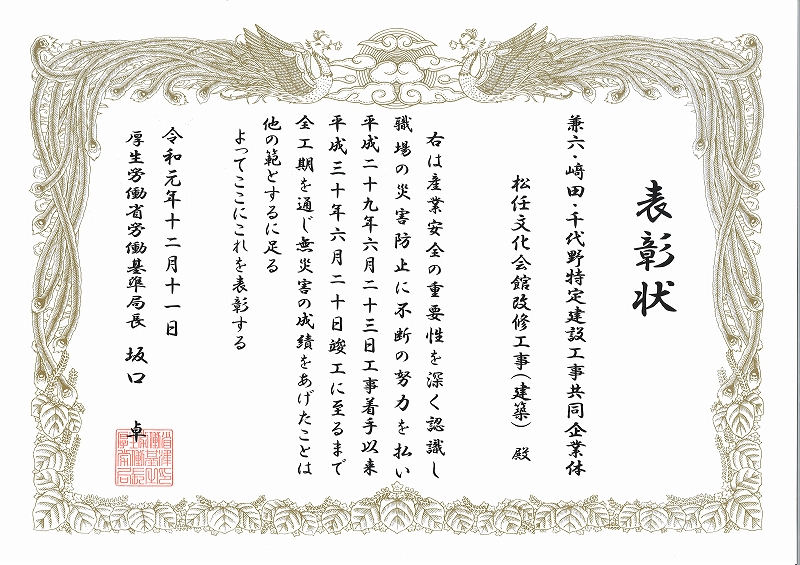 表彰状
兼六・﨑田・千代野特定建設工事共同企業体
松任文化会館改修工事(建築) 殿
右は産業安全の重要性を深く認識し
職場の災害防止に不断の努力を払い
平成二十九年六月二十三日工事着手以来
平成三十年六月二十日竣工に至るまで
全工期を通じ無災害の成績をあげたことは
他の範とするに足る
よってここにこれを表彰する
令和元年十二月十一日
厚生労働省労働基準局長 坂口 卓